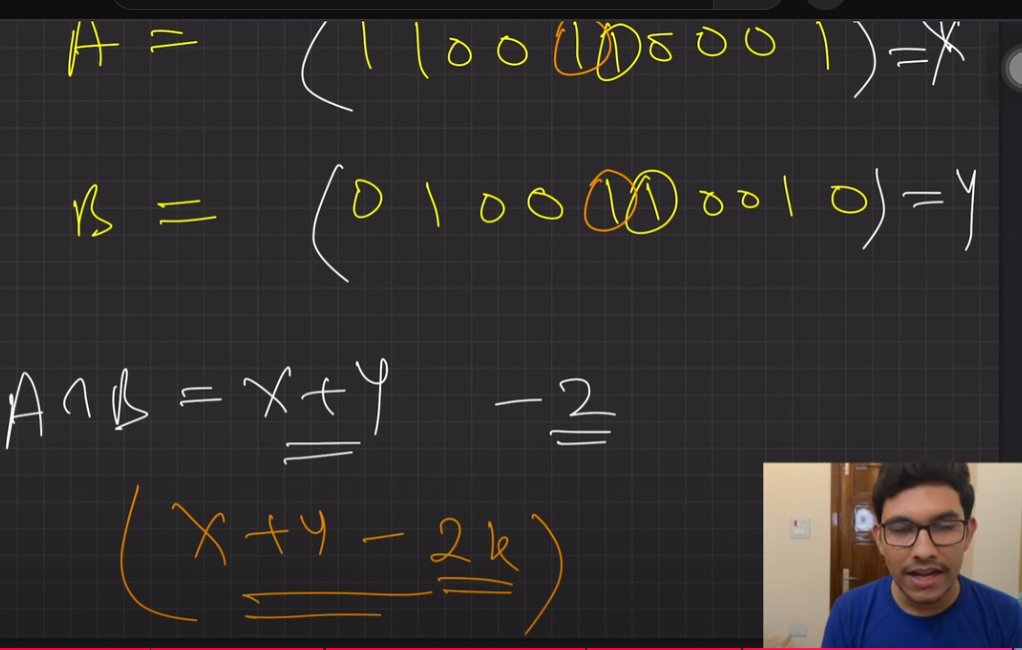 A = (11001100001) = X
B = (01001100010) = Y
A ∩ B = X + Y - 2
(X + Y - 2k)